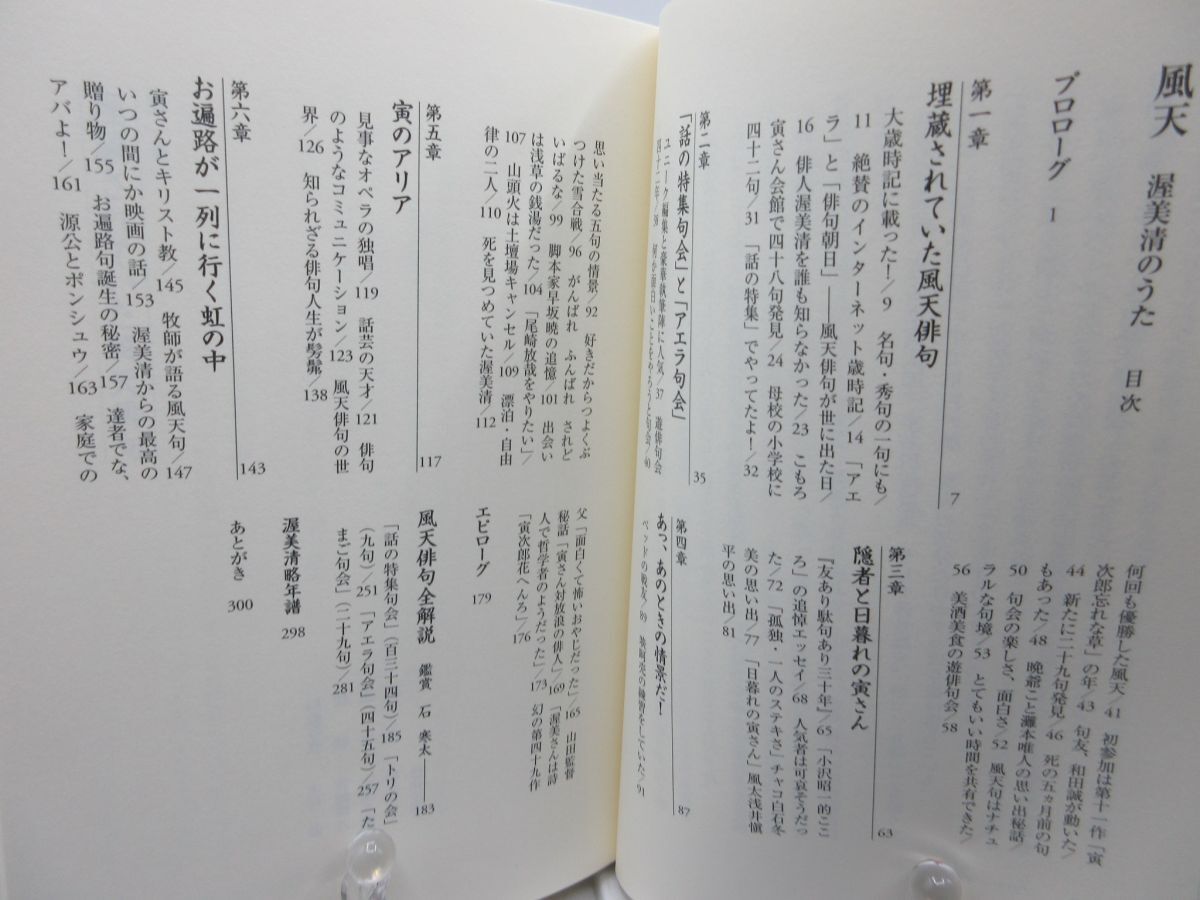 風天 渥美清のうた 目次
プロローグ 1
第一章
埋蔵されていた風天俳句 7
大歳時記に載った!/9 名句・秀句の一句にも/
11 絶賛のインターネット歳時記/14 「アエ
ラ」と「俳句朝日」――風天俳句が世に出た日/
16 俳人渥美清を誰も知らなかった/23 こもろ
寅さん会館で四十八句発見/24 母校の小学校に
四十二句/31 「話の特集」でやってたよ!/32
第二章
「話の特集句会」と「アエラ句会」 35
ユニーク編集と豪華執筆陣に人気/37 遊俳句会
四十二年/39 何か面白いことをやろうと句会/40
何回も優勝した風天/41 初参加は第十一作「寅
次郎忘れな草」の年/43 句友、和田誠が動いた/
44 新たに二十九句発見/46 死の五ヵ月前の句
もあった/48 晩爺こと灘本唯人の思い出秘話/
50 句会の楽しさ、面白さ/52 風天句はナチュ
ラルな句境/53 とてもいい時間を共有できた/
56 美酒美食の遊俳句会/58
第三章
隠者と日暮れの寅さん 63
『友あり駄句あり三十年』/65 「小沢昭一的ここ
ろ」の追悼エッセイ/68 人気者は可哀そうだっ
た/72 「孤独・一人のステキさ」チャコ白石冬
美の思い出/77 「日暮れの寅さん」風太浅井愼
平の思い出/81
第四章
あっ、あのときの情景だ! 87
ベッドの戦友/89 地回売の練習をしていた/91
思い当たる五句の情景/92 好きだからつよくぶ
つけた雪合戦/96 がんばれ ふんばれ されど
いばるな/99 脚本家早坂暁の追憶/101 出会い
は浅草の銭湯だった/104 「尾崎放哉をやりたい」/
107 山頭火は土壇場キャンセル/109 漂泊・自由
律の二人/110 死を見つめていた渥美清/112
第五章
寅のアリア 117
見事なオペラの独唱/119 話芸の天才/121 俳句
のようなコミュニケーション/123 風天俳句の世
界/126 知られざる俳句人生が髣髴/138
第六章
お遍路が一列に行く虹の中 143
寅さんとキリスト教/145 牧師が語る風天句/147
いつの間にか映画の話/153 渥美清からの最高の
贈り物/155 お遍路句誕生の秘密/157 達者でな、
アバよ!/161 源公とポンシュウ/163 家庭での
父「面白くて怖いおやじだった」/165 山田監督
秘話「寅さん対放浪の俳人」/169 「渥美さんは詩
人で哲学者のようだった」/173 幻の第四十九作
「寅次郎花へんろ」/176
エピローグ 179
風天俳句全解説 鑑賞 石 寒太―― 183
「話の特集句会」(百三十四句)/185 「トリの会」
(九句)/251 「アエラ句会」(四十五句)/257 「た
まご句会」(二十九句)/281
渥美清略年譜 298
あとがき 300